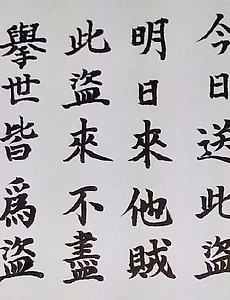 今日送此盜
明日來他賊
此盜來不盡
舉世皆爲盜